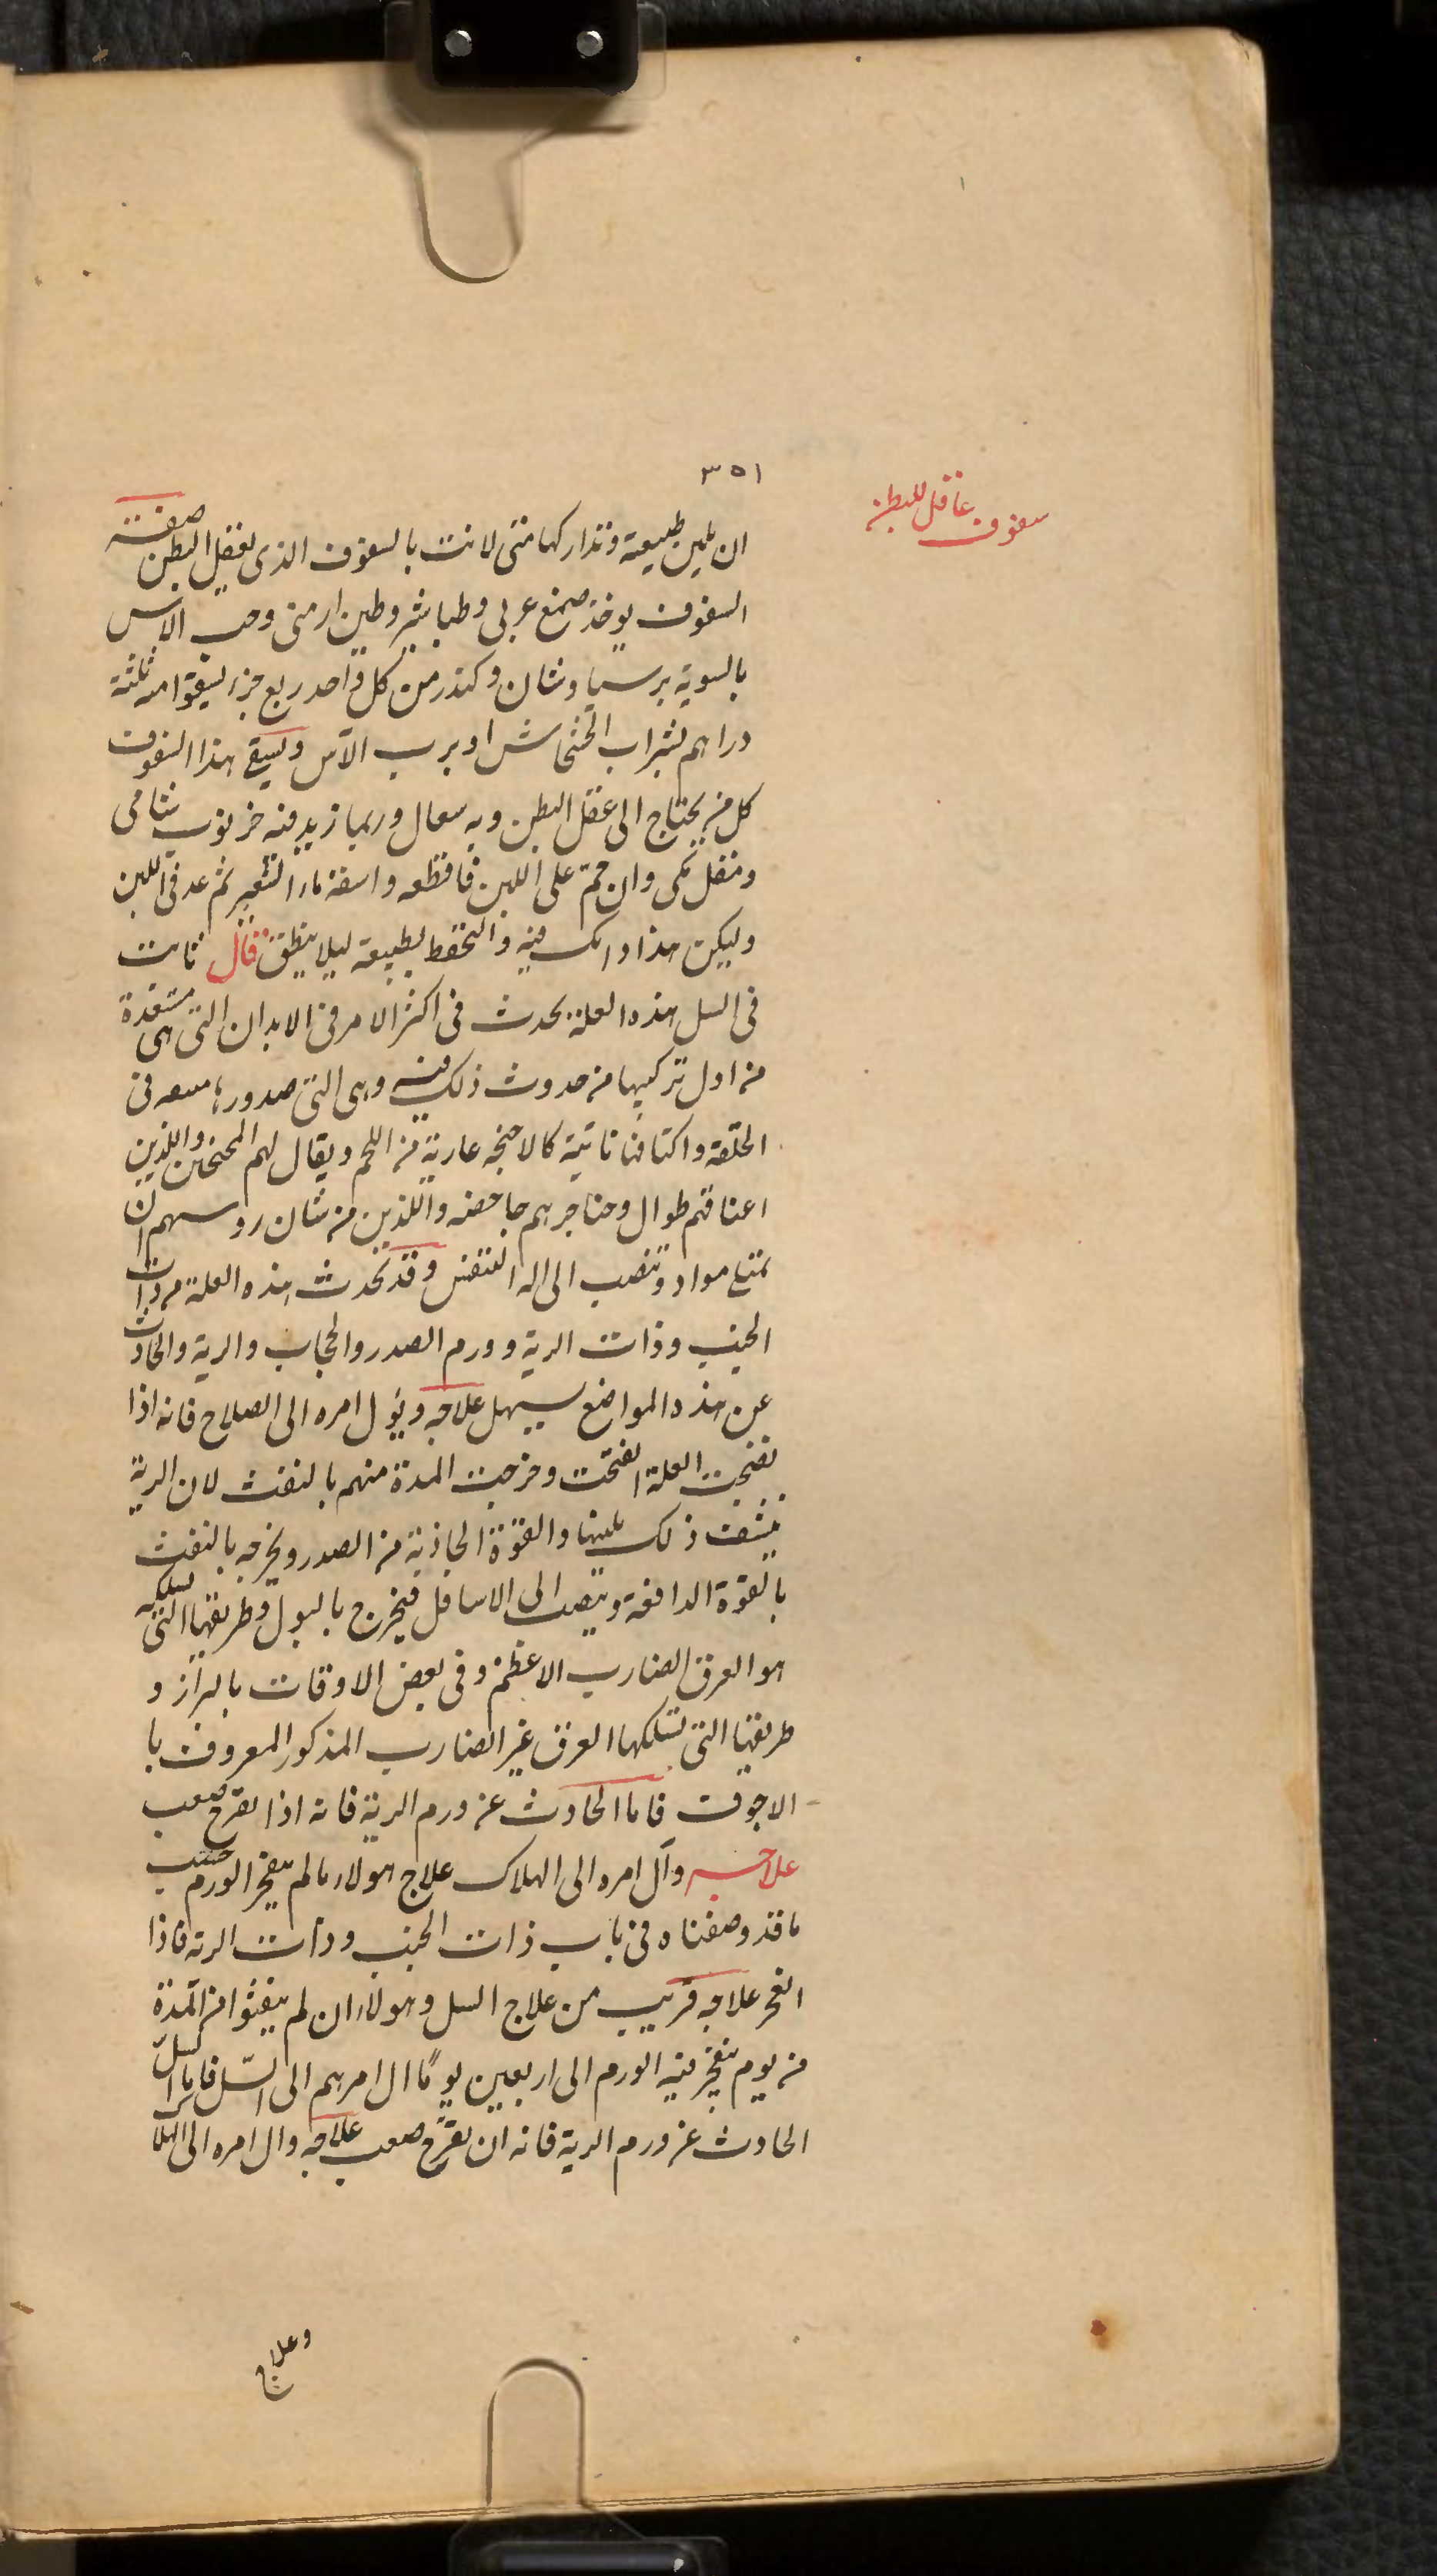 ٣٥١
سفوف عاقل للبطن
ان يلين طبيعته وتداركها متى لانت بالسفوف الذى يعقل البطن صفة
السفوف يوخذ صمغ عربى وطباشير وطين ارمنى وحب الاس
بالسوية برسياوشان وكندر من كل واحد ربع جزء ليسقوا منه ثلثة
دراهم بشراب الخشخاش او برب الآس ويسقى هذا السفوف
كل من يحتاج الى عقل البطن وبه سعال وربما زيد فيه خرنوب شامى
ومقل مكى وان حمّ على اللبن فاقطعه واسقه ماء الشعير ثم عد فى اللبن
وليكن هذا دابك فيه والتحفظ بطبيعته ليلا ينطلق قال ثابت
فى السل هذه العلة يحدث فى اكثر الامر فى الابدان التى هى مستعدة
من اول تركيبها من حدوث ذلك فيه وهى التى صدورها ضيقة فى
الخلقة واكتافنا ناتية كالاجنحة عارية من اللحم ويقال لهم المجنحين والذين
اعناقهم طوال وحناجرهم جاحضه واللذين من شان روسهم ان
تمتلئ مواد وتنصب الى اله التنفس وقد تحدث هذه العلة من ذات
الجنب وذات الرية وورم الصدر والحجاب والرية والحادث
عن هذه المواضع يسهل علاجه ويؤل امره الى الصلاح فانه اذا
نضجت العلة انفتحت وخرجت المدة منهم بالنفث لان الرية
ينشف ذلك بلينها والقوة الجاذبة من الصدر ويخرجه بالنفث
بالقوة الدافعة وينصب الى الاسافل فيخرج بالبول وطريقها التى تسلكه
هو العرق الضارب الاعظم وفى بعض الاوقات بالبراز و
طريقها التى تسلكها العرق غير الضارب المذكور المعروف با
الاجوف فاما الحادث عن ورم الرية فانه اذا تقرح صعب
علاجه وآل امره الى الهلاك علاج هولاء ما لم ينفجر الورم حسب
ما قد وصفناه فى باب ذات الجنب وذات الرية فاذا
انفجر علاجه قريب من علاج السل وهولاء ان لم ينفثوا من المدة
من يوم ينفجر فيه الورم الى اربعين يومًا ال امرهم الى السل فاما السل
الحادث عن ورم الرية فانه ان تقرح صعب علاجه وال امره الى الهلاك
وعلاج